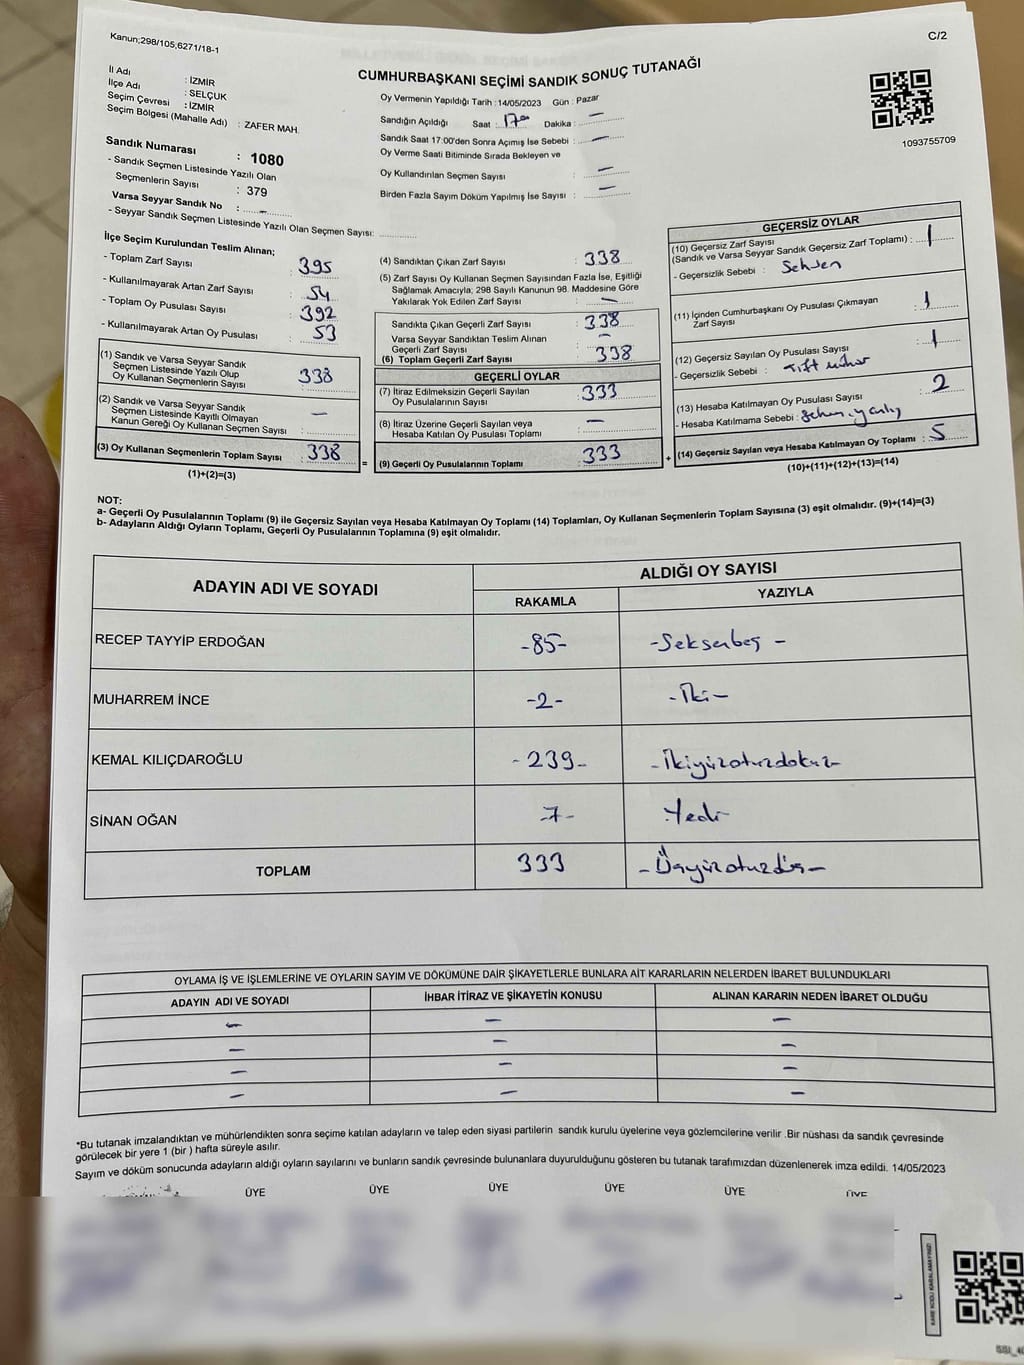 Kanun;298/105,6271/18-1
C/2
CUMHURBAŞKANI SEÇİMİ SANDIK SONUÇ TUTANAĞI
İl Adı : İZMİR
İlçe Adı : SELÇUK
Seçim Çevresi : İZMİR
Seçim Bölgesi (Mahalle Adı) : ZAFER MAH.
Oy Vermenin Yapıldığı Tarih : 14/05/2023 Gün : Pazar
Sandığın Açıldığı Saat : 17⁰⁰ Dakika : —
Sandık Saat 17:00'den Sonra Açımış İse Sebebi : —
Oy Verme Saati Bitiminde Sırada Bekleyen ve
Oy Kullandırılan Seçmen Sayısı : —
Birden Fazla Sayım Döküm Yapılmış İse Sayısı : —
1093755709
Sandık Numarası : 1080
- Sandık Seçmen Listesinde Yazılı Olan
Seçmenlerin Sayısı : 379
Varsa Seyyar Sandık No : —
- Seyyar Sandık Seçmen Listesinde Yazılı Olan Seçmen Sayısı:
İlçe Seçim Kurulundan Teslim Alınan;
- Toplam Zarf Sayısı : 395
- Kullanılmayarak Artan Zarf Sayısı : 54
- Toplam Oy Pusulası Sayısı : 392
- Kullanılmayarak Artan Oy Pusulası : 53
(1) Sandık ve Varsa Seyyar Sandık
Seçmen Listesinde Yazılı Olup
Oy Kullanan Seçmenlerin Sayısı : 338
(2) Sandık ve Varsa Seyyar Sandık
Seçmen Listesinde Kayıtlı Olmayan
Kanun Gereği Oy Kullanan Seçmen Sayısı : —
(3) Oy Kullanan Seçmenlerin Toplam Sayısı : 338
(1)+(2)=(3)
(4) Sandıktan Çıkan Zarf Sayısı : 338
(5) Zarf Sayısı Oy Kullanan Seçmen Sayısından Fazla İse, Eşitliği
Sağlamak Amacıyla; 298 Sayılı Kanunun 98. Maddesine Göre
Yakılarak Yok Edilen Zarf Sayısı : —
Sandıkta Çıkan Geçerli Zarf Sayısı : 338
Varsa Seyyar Sandıktan Teslim Alınan
Geçerli Zarf Sayısı : —
(6) Toplam Geçerli Zarf Sayısı : 338
GEÇERLİ OYLAR
(7) İtiraz Edilmeksizin Geçerli Sayılan
Oy Pusulalarının Sayısı : 333
(8) İtiraz Üzerine Geçerli Sayılan veya
Hesaba Katılan Oy Pusulası Toplamı : —
= (9) Geçerli Oy Pusulalarının Toplamı : 333
GEÇERSİZ OYLAR
(10) Geçersiz Zarf Sayısı
(Sandık ve Varsa Seyyar Sandık Geçersiz Zarf Toplamı) : 1
- Geçersizlik Sebebi : Sehven
(11) İçinden Cumhurbaşkanı Oy Pusulası Çıkmayan
Zarf Sayısı : 1
(12) Geçersiz Sayılan Oy Pusulası Sayısı : 1
- Geçersizlik Sebebi : Tift mühür
(13) Hesaba Katılmayan Oy Pusulası Sayısı : 2
- Hesaba Katılmama Sebebi : Sehven, yanlış
+ (14) Geçersiz Sayılan veya Hesaba Katılmayan Oy Toplamı : 5
(10)+(11)+(12)+(13)=(14)
NOT:
a- Geçerli Oy Pusulalarının Toplamı (9) ile Geçersiz Sayılan veya Hesaba Katılmayan Oy Toplamı (14) Toplamları, Oy Kullanan Seçmenlerin Toplam Sayısına (3) eşit olmalıdır. (9)+(14)=(3)
b- Adayların Aldığı Oyların Toplamı, Geçerli Oy Pusulalarının Toplamına (9) eşit olmalıdır.
ADAYIN ADI VE SOYADI
ALDIĞI OY SAYISI
RAKAMLA YAZIYLA
RECEP TAYYİP ERDOĞAN -85- -Seksenbeş-
MUHARREM İNCE -2- -İki-
KEMAL KILIÇDAROĞLU -239- -İkiyüzotuzdokuz-
SİNAN OĞAN -7- -Yedi-
TOPLAM 333 -Üçyüzotuzüç-
OYLAMA İŞ VE İŞLEMLERİNE VE OYLARIN SAYIM VE DÖKÜMÜNE DAİR ŞİKAYETLERLE BUNLARA AİT KARARLARIN NELERDEN İBARET BULUNDUKLARI
ADAYIN ADI VE SOYADI İHBAR İTİRAZ VE ŞİKAYETİN KONUSU ALINAN KARARIN NEDEN İBARET OLDUĞU
— — —
— — —
— — —
— — —
*Bu tutanak imzalandıktan ve mühürlendikten sonra seçime katılan adayların ve talep eden siyasi partilerin sandık kurulu üyelerine veya gözlemcilerine verilir .Bir nüshası da sandık çevresinde
görülecek bir yere 1 (bir ) hafta süreyle asılır.
Sayım ve döküm sonucunda adayların aldığı oyların sayılarını ve bunların sandık çevresinde bulunanlara duyurulduğunu gösteren bu tutanak tarafımızdan düzenlenerek imza edildi. 14/05/2023
ÜYE ÜYE ÜYE ÜYE ÜYE ÜYE
KARE KODU KARALAMAYINIZ!